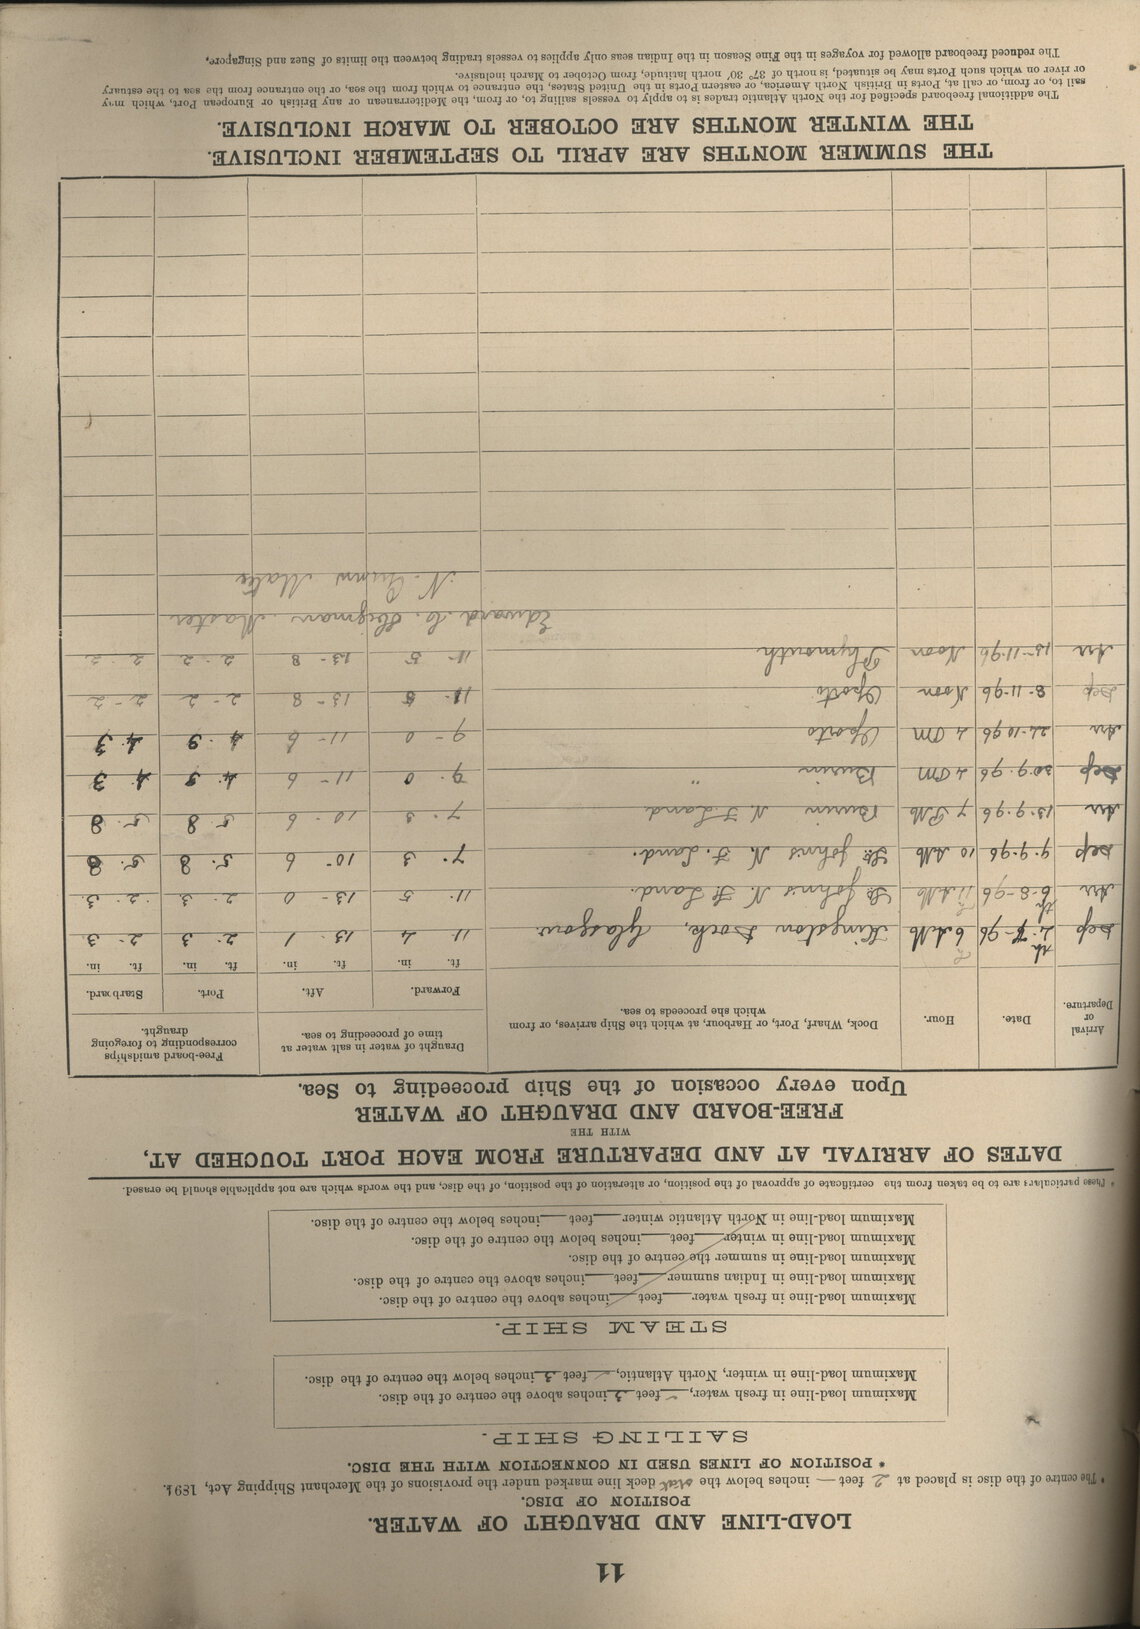 11
LOAD-LINE AND DRAUGHT OF WATER.
POSITION OF DISC.
* The centre of the disc is placed at 2 feet — inches below the deck line marked under the provisions of the Merchant Shipping Act, 1894.
* POSITION OF LINES USED IN CONNECTION WITH THE DISC.
SAILING SHIP.
Maximum load-line in fresh water, feet 3 inches above the centre of the disc.
Maximum load-line in winter, North Atlantic, feet 3 inches below the centre of the disc.
STEAM SHIP.
Maximum load-line in fresh water feet inches above the centre of the disc.
Maximum load-line in Indian summer feet inches above the centre of the disc.
Maximum load-line in summer the centre of the disc.
Maximum load-line in winter feet inches below the centre of the disc.
Maximum load-line in North Atlantic winter feet inches below the centre of the disc.
* These particulars are to be taken from the certificate of approval of the position, or alteration of the position, of the disc, and the words which are not applicable should be erased.
DATES OF ARRIVAL AT AND DEPARTURE FROM EACH PORT TOUCHED AT,
WITH THE
FREE-BOARD AND DRAUGHT OF WATER
Upon every occasion of the Ship proceeding to Sea.
Arrival or Departure. Date. Hour. Dock, Wharf, Port, or Harbour, at which the Ship arrives, or from which she proceeds to sea. Draught of water in salt water at time of proceeding to sea. Free-board amidships corresponding to foregoing draught.
Forward. Aft. Port. Starboard.
ft. in. ft. in. ft. in. ft. in.
Dep 4th 7-96 6 AM Kingston Dock, Glasgow 11 4 13 1 2 3 2 3
Arr 6th-8-96 11 AM St Johns N. F. Land. 11 5 13 0 2 3 2 3
Dep 9.9.96 10 AM St Johns N. F. Land. 7 3 10 6 5 8 5 8
Arr 13.9.96 7 PM Burin N. F. Land 7 3 10 6 5 8 5 8
Dep 30.9.96 4 PM Burin " 9 0 11 6 4 3 4 3
Arr 24.10.96 4 PM Oporto 9 0 11 6 4 3 4 3
Dep 8.11.96 Noon Oporto 11 5 13 8 2 2 2 2
Arr 15-11-96 Noon Plymouth 11 5 13 8 2 2 2 2
Edward C. Master
N. Mate
THE SUMMER MONTHS ARE APRIL TO SEPTEMBER INCLUSIVE.
THE WINTER MONTHS ARE OCTOBER TO MARCH INCLUSIVE.
The additional freeboard specified for the North Atlantic trades is to apply to vessels sailing to, or from, the Mediterranean or any British or European Port, which may
sail to, or from, or call at, Ports in British North America, or eastern Ports in the United States, the entrance to which from the sea, or the entrance from the sea to the estuary
or river on which such Ports may be situated, is north of 37° 30' north latitude, from October to March inclusive.
The reduced freeboard allowed for voyages in the Fine Season in the Indian seas only applies to vessels trading between the limits of Suez and Singapore,